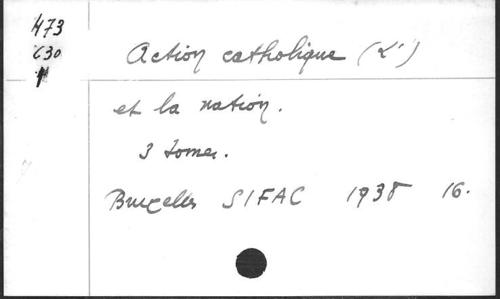 473
630
Action catholique (L')
et la nation.
3 tomes.
Bruxelles SIFAC 1938 16.